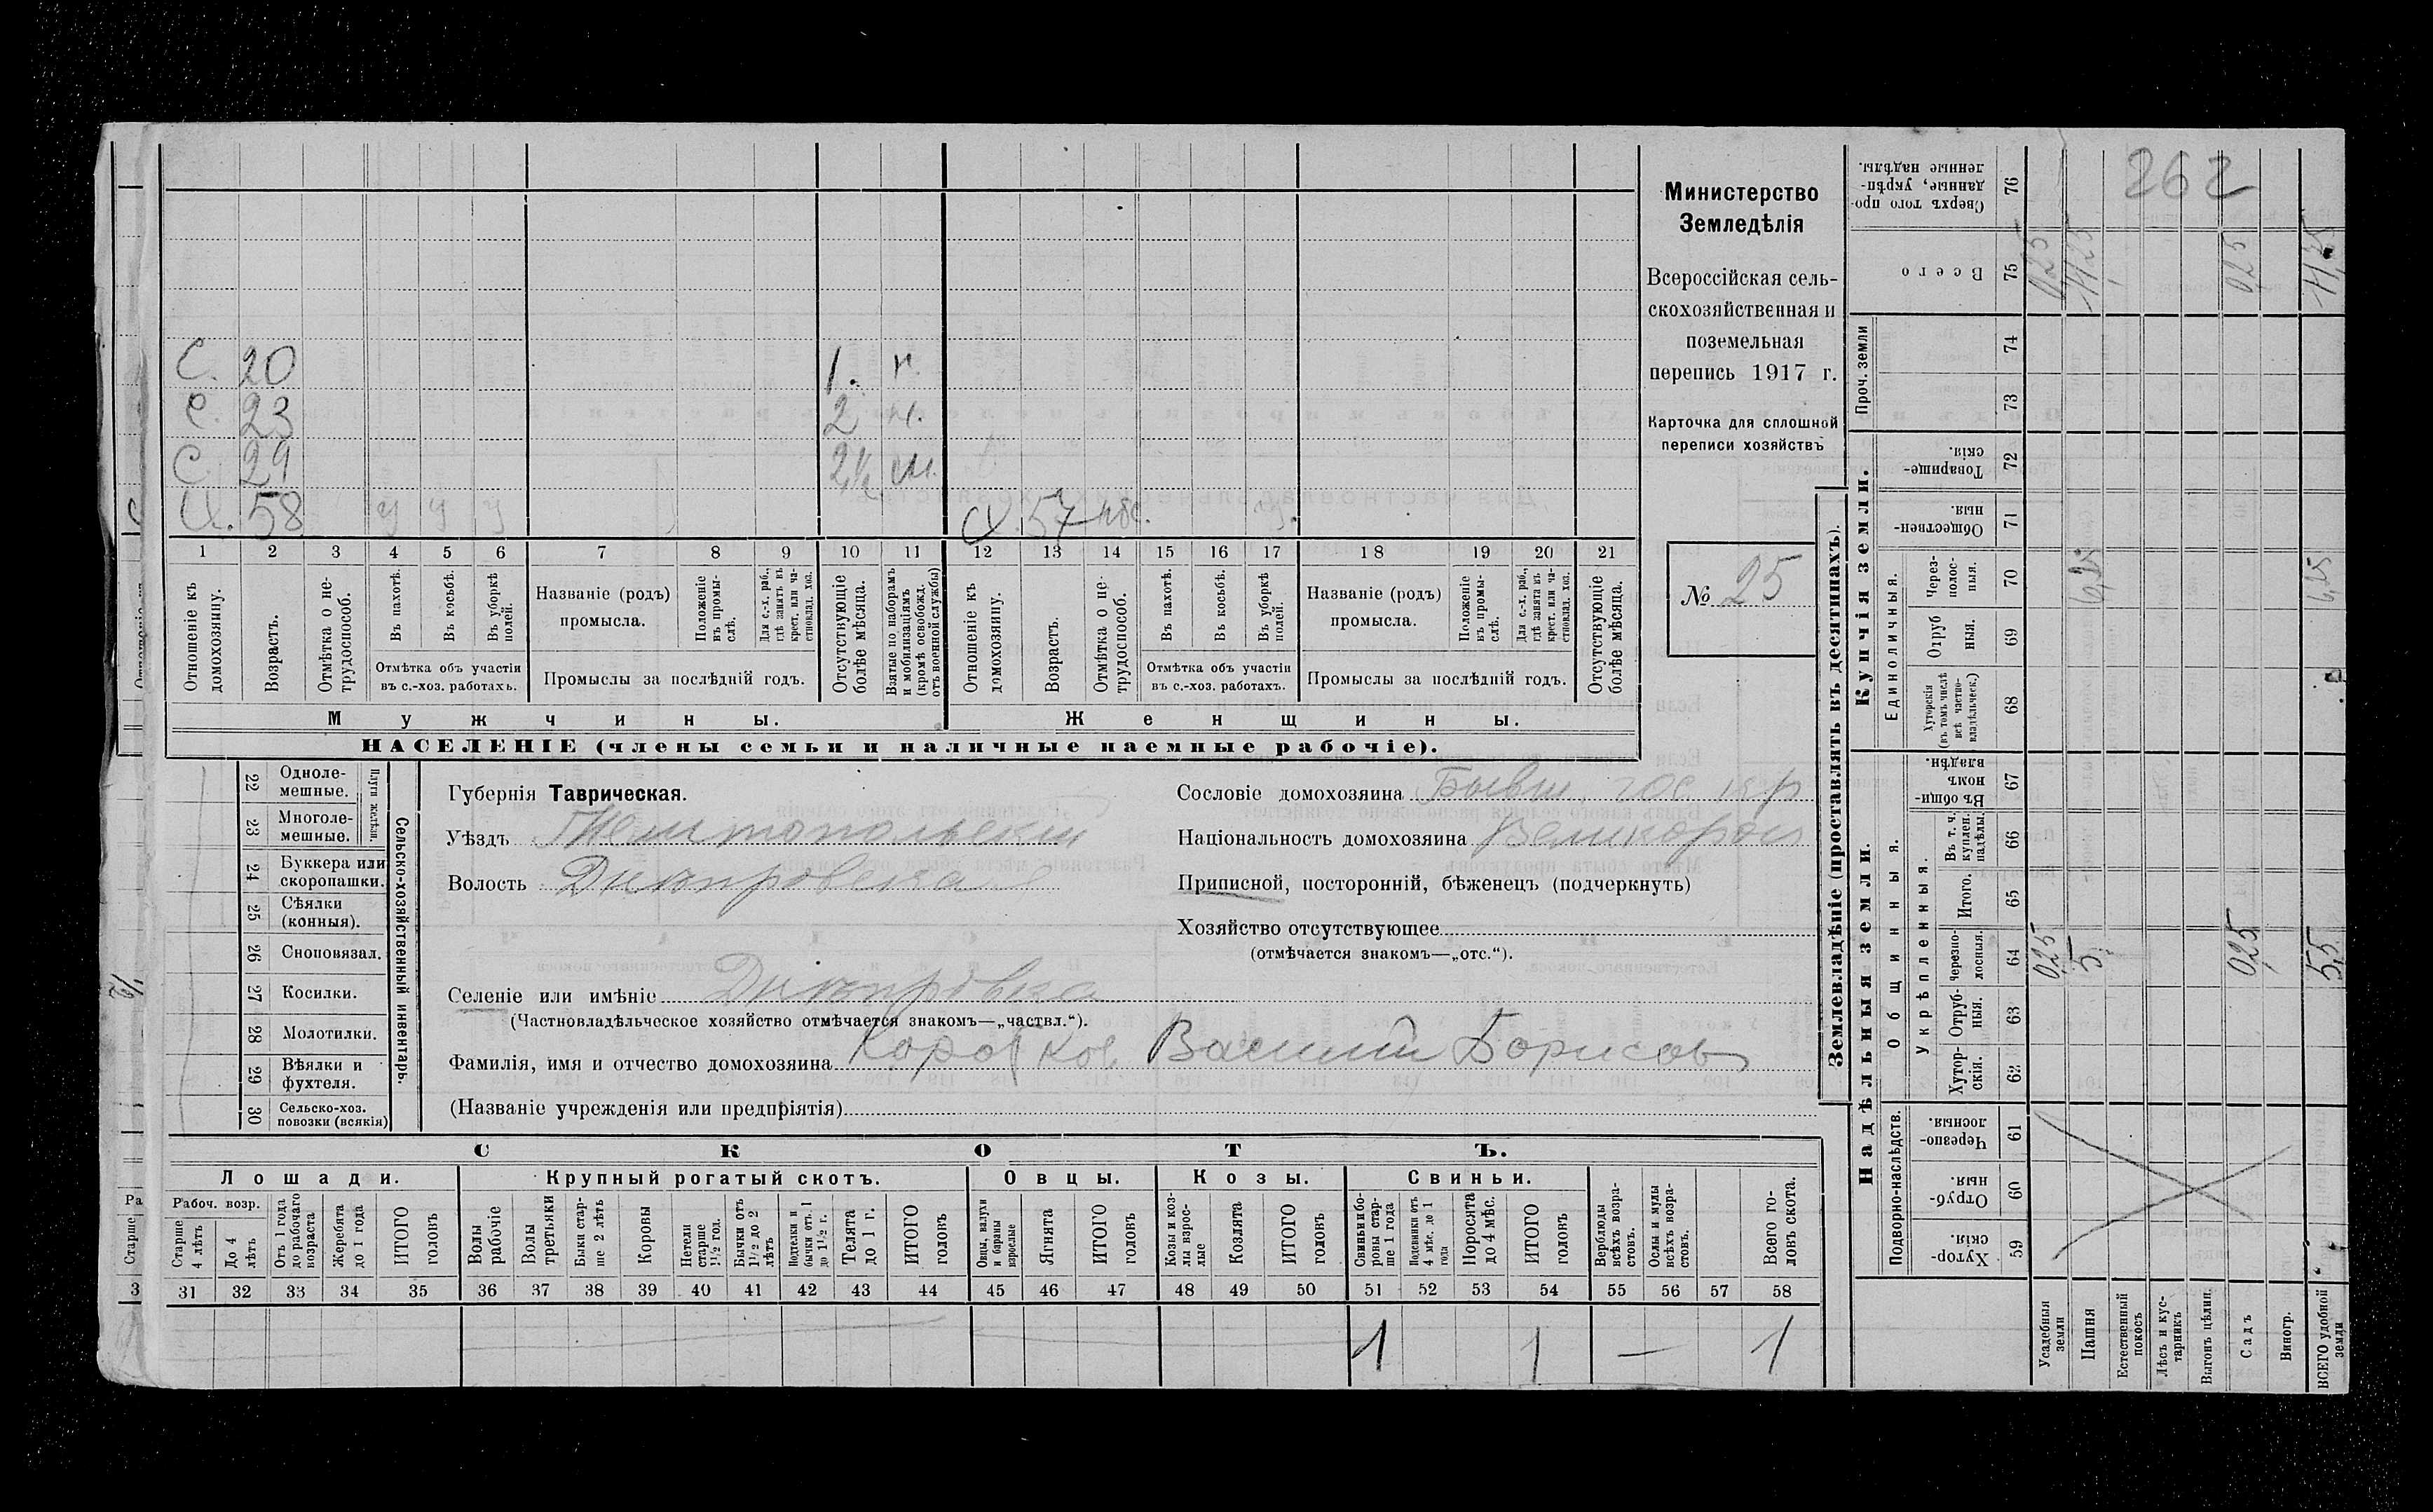 262
С. 20 1. н.
С. 23 2 н.
С 29 2½ н.
Х. 58 у у у Ж. 57 у.
1 2 3 4 5 6 7 8 9 10 11 12 13 14 15 16 17 18 19 20 21
Отношеніе къ домохозяину.
Возрастъ.
Отмѣтка о нетрудоспособ.
Въ пахотѣ.
Въ косьбѣ.
Въ уборкѣ полей.
Отмѣтка объ участіи
въ с.-хоз. работахъ.
Названіе (родъ)
промысла.
Положеніе въ промыслѣ.
Для с.-х. раб., гдѣ занятъ въ крест. или частновлад. хоз.
Промыслы за послѣдній годъ.
Отсутствующіе болѣе мѣсяца.
Взятые по наборамъ и мобилизаціямъ (кромѣ освобожд. отъ военной службы)
Отношеніе къ домохозяину.
Возрастъ.
Отмѣтка о нетрудоспособ.
Въ пахотѣ.
Въ косьбѣ.
Въ уборкѣ полей.
Отмѣтка объ участіи
въ с.-хоз. работахъ.
Названіе (родъ)
промысла.
Положеніе въ промыслѣ.
Для с.-х. раб., гдѣ занята въ крест. или частновлад. хоз.
Промыслы за послѣдній годъ.
Отсутствующіе болѣе мѣсяца.
Мужчины. Женщины.
НАСЕЛЕНІЕ (члены семьи и наличные наемные рабочіе).
Министерство
Земледѣлія
Всероссійская сель-
скохозяйственная и
поземельная
перепись 1917 г.
Карточка для сплошной
переписи хозяйствъ
№ 25
22 Одноле-
мешные.
23 Многоле-
мешные.
Плуги желѣзн.
24 Буккера или
скоропашки.
25 Сѣялки
(конныя).
26 Сноповязал.
27 Косилки.
28 Молотилки.
29 Вѣялки и
фухтеля.
30 Сельско-хоз.
повозки (всякія)
Сельско-хозяйственный инвентарь.
Губернія Таврическая.
Уѣздъ Мелитопольскій
Волость Днѣпровская
Селеніе или имѣніе Днѣпровка
(Частновладѣльческое хозяйство отмѣчается знакомъ—„частвл.“).
Фамилія, имя и отчество домохозяина Коротков Василий Борисов
(Названіе учрежденія или предпріятія)
Сословіе домохозяина Бывш. гос.
Національность домохозяина Великоросс
Приписной, посторонній, бѣженецъ (подчеркнуть)
Хозяйство отсутствующее
(отмѣчается знакомъ—„отс.“).
СКОТЪ.
Лошади. Крупный рогатый скотъ. Овцы. Козы. Свиньи.
Рабоч. возр.
Старше 4 лѣтъ
До 4 лѣтъ
Отъ 1 года до рабочаго возраста
Жеребята до 1 года
ИТОГО головъ
Волы рабочіе
Волы третьяки
Быки старше 2 лѣтъ
Коровы
Нетели старше 1½ год.
Бычки отъ 1½ до 2 лѣтъ
Подтелки и бычки отъ 1 до 1½ г.
Телята до 1 г.
ИТОГО головъ
Овцы, валухи и бараны взрослые
Ягнята
ИТОГО головъ
Козы и козлы взрослые
Козлята
ИТОГО головъ
Свиньи и боровы старше 1 года
Подсвинки отъ 4 мѣс. до 1 года
Поросята до 4 мѣс.
ИТОГО головъ
Верблюды всѣхъ возрастовъ.
Ослы и мулы всѣхъ возрастовъ.
Всего головъ скота.
31 32 33 34 35 36 37 38 39 40 41 42 43 44 45 46 47 48 49 50 51 52 53 54 55 56 57 58
1 1 — 1
Ра
Старше
3
Землевладѣніе (проставлять въ десятинахъ).
Купчія земли.
Надѣльныя земли.
Сверхъ того проданные, укрѣпленные надѣлы. 76
Всего 75 0,25 11,25 0,25 11,5
Проч. земли 74
73
Товарищескія. 72
Общественныя. 71
Единоличныя.
Черезполосныя. 70 6,25 6,25
Отрубныя. 69
Хуторскія (въ томъ числѣ всѣ частновладѣльческ.) 68
Общинныя.
Въ общиномъ владѣн. 67
Укрѣпленныя.
Въ т. ч. куплен. надѣлы. 66
Итого. 65
Черезполосныя. 64 0,25 5 0,25 5,5
Отрубныя. 63
Хуторскія. 62
Подворно-наслѣдств.
Черезполосныя. 61
Отрубныя. 60
Хуторскія. 59
Усадебныя земли
Пашня
Естественный покосъ
Лѣсъ и кустарникъ
Выгонъ цѣлин.
Садъ
Виногр.
ВСЕГО удобной земли